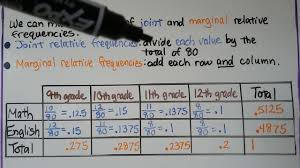 We can m of joint and marginal relative
frequencies.
• Joint relative frequencies: divide each value by the
total of 80
• Marginal relative frequencies: add each row and column.
9th grade 10th grade 11th grade 12th grade Total
Math 10/80 = .125 12/80 = .15 11/80 = .1375 8/80 = .1 .5125
English 12/80 = .15 .1375 8/80 = .1 .4875
Total .275 .2375 .2 1